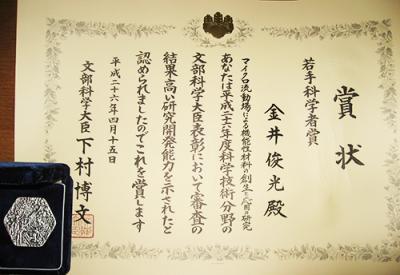 賞状
若手科学者賞
金井俊光殿
マイクロ流動場による機能性材料の創生と応用の研究
あなたは平成二十六年度科学技術分野の
文部科学大臣表彰において審査の
結果高い研究開発能力を示されたと
認められましたのでこれを賞します
平成二十六年四月十五日
文部科学大臣 下村博文